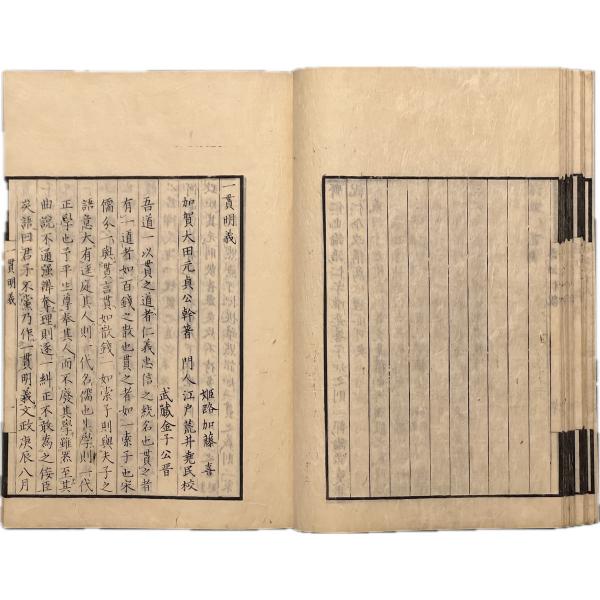 一貫明義
加賀大田元貞公幹著 門人江戸荒井堯民校
姫路加藤善
武蔵金子公晋
吾道一以貫之道者仁義忠信之統名也貫之者
有一道者如百錢之散也貫之者如一索子也宋
儒分一與貫言貫如散錢一如索子則與夫子之
語意大有逕庭其人則一代名儒也其學則一代
正學也予平生尊奉其人而不廢其學雖然至其
曲説不通强辨奪理則逐一糾正不敢為之佞臣
炎語曰君子不黨乃作一貫明義文政庚辰八月
一貫明義